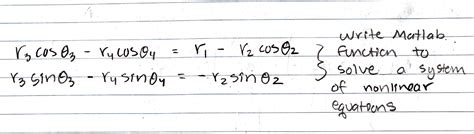 r₃ cos θ₃ - r₄ cos θ₄ = r₁ - r₂ cos θ₂
r₃ sin θ₃ - r₄ sin θ₄ = - r₂ sin θ₂
}
write Matlab
function to
solve a system
of nonlinear
equations